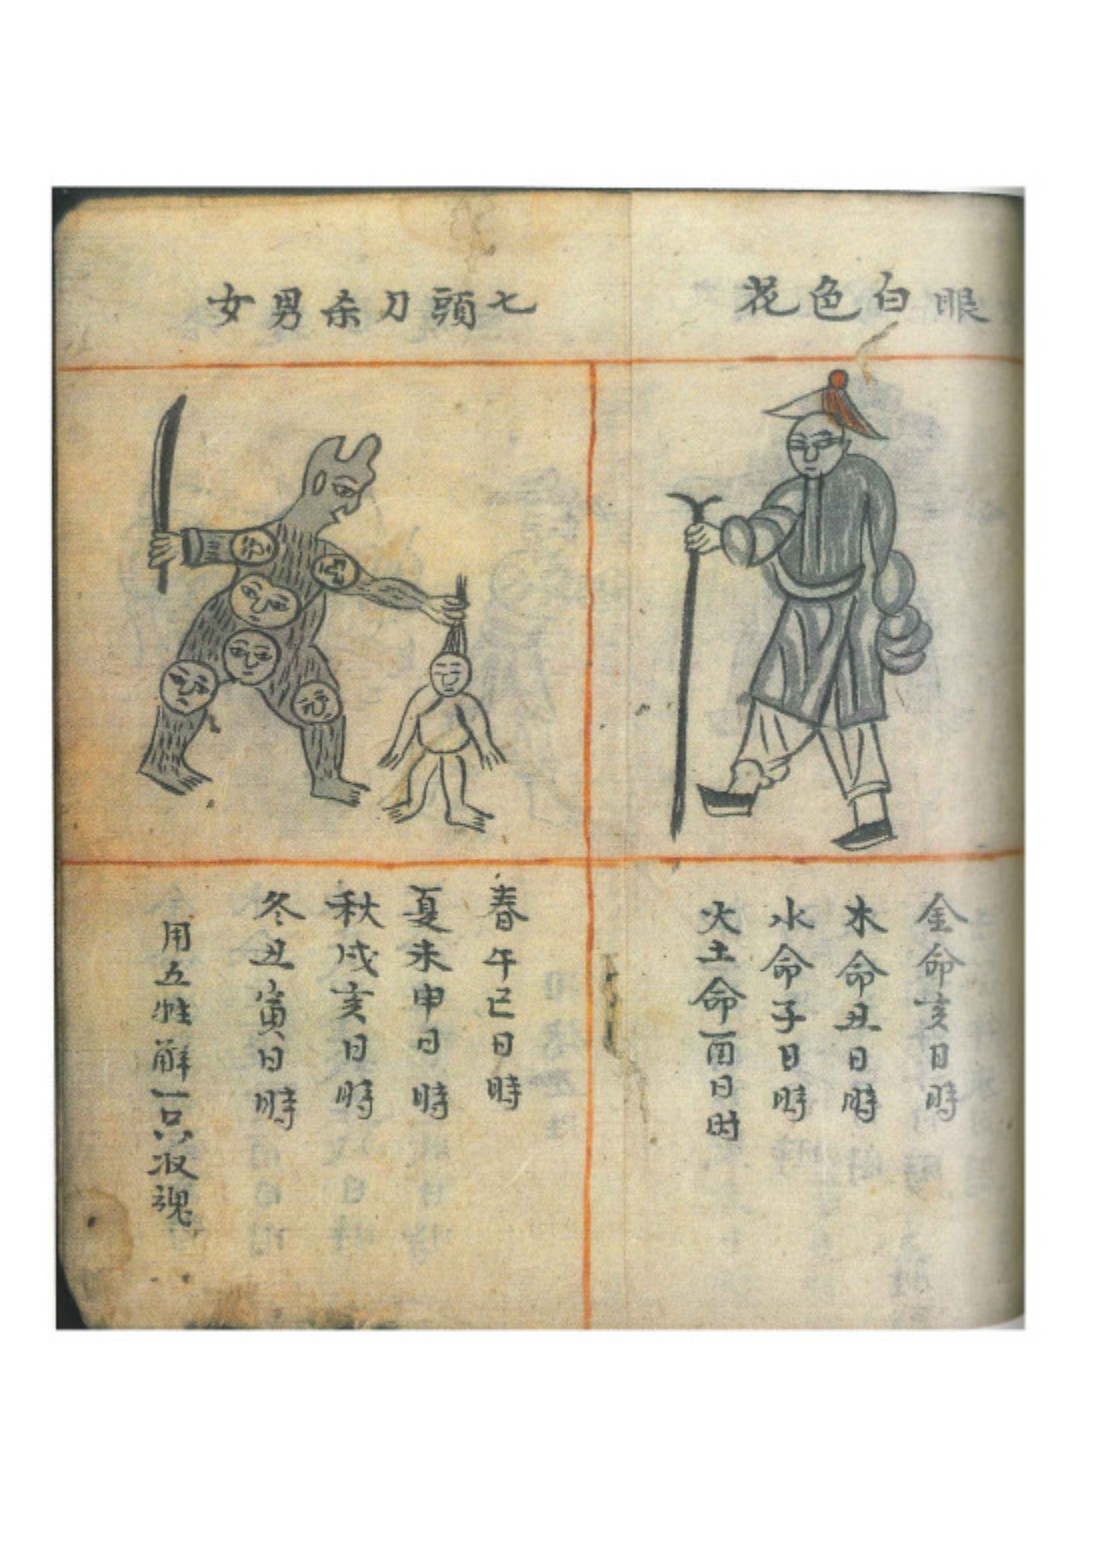 眼白色花
金命亥日時
木命丑日時
水命子日時
火土命酉日时
七頭刀杀男女
春午巳日時
夏未申日時
秋戌亥日時
冬丑寅日時
用五牲解一只收魂